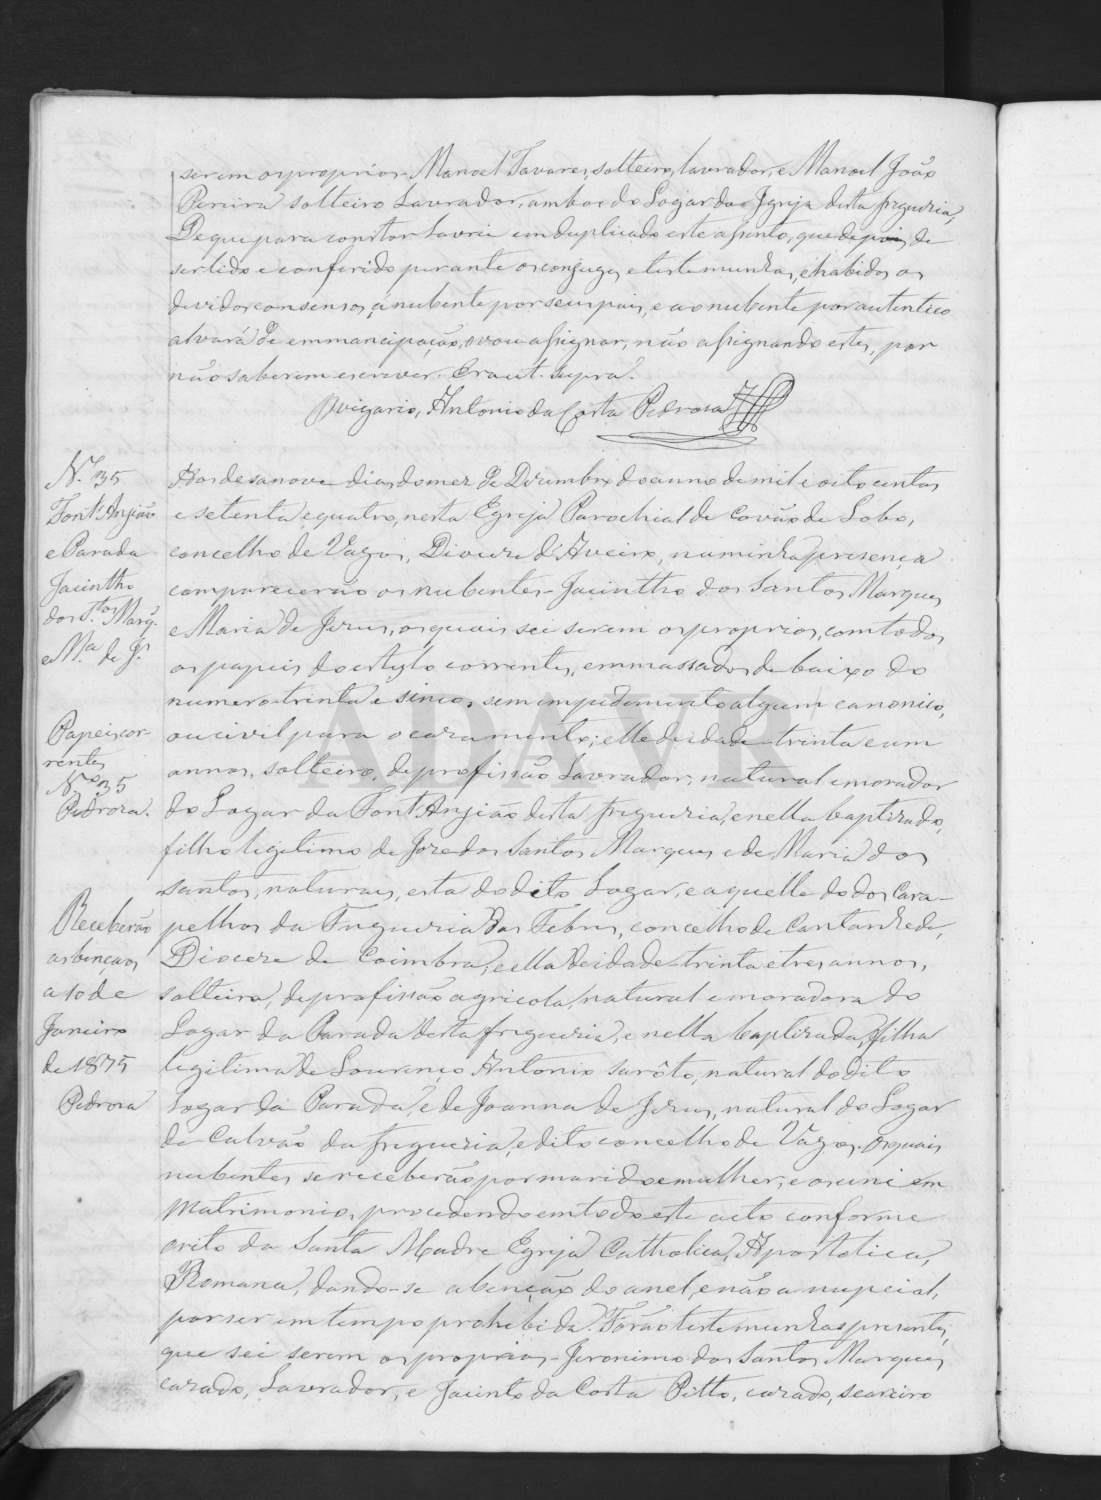 serem os proprios - Manoel Tavares, solteiro, lavrador, e Manoel João
Pereira solteiro Lavrador, ambos do Logar da Igreja desta freguezia,
De que para constar lavrei em duplicado este assento, que depois de
ser lido e conferido perante os conjuges e testemunhas, e havidos os
devidos consensos, a nubente por seus pais, e ao nubente por autentico
alvará de emmancipação, o vou assignar, não assignando estes, por
não saberem escrever. Era ut supra.
O vigario, Antonio da Costa Pedrosa
N.º 35
Font'Anjião
e Parada
Jacintho
dos S.tos Marq.
e M.ª de J.s
Papeis cor-
rentes
N.º 35
Pedrosa.
Receberão
as bençaos
a 10 de
Janeiro
de 1875
Pedrosa
Aos desanove dias do mez de Dezembro do anno de mil e oito centos
e setenta e quatro, nesta Egreja Parochial de Covão de Lobo,
concelho de Vagos, Diocese d'Aveiro, na minha presença
comparecerão os nubentes - Jacintho dos Santos Marques
e Maria de Jesus, os quais sei serem os proprios, com todos
os papeis do estylo correntes, emmassados de baixo do
numero trinta e sinco, sem impedimento algum canonico,
ou civil para o casamento; elle de idade trinta e um
annos, solteiro, de profissão Lavrador, natural e morador
do Logar da Font'Anjião desta freguezia, e nella baptizado,
filho legitimo de Jose dos Santos Marques e de Maria dos
Santos, naturais, esta do dito Logar, e aquelle do dos Cara-
pelhos da Freguezia das Febres, concelho de Cantanhede,
Diocese de Coimbra; e ella de idade trinta e tres annos,
solteira, de profissão agricola, natural e moradora do
Logar da Parada desta freguezia, e nella baptizada, filha
legitima de Lourenço Antonio Sarôto, natural do dito
Logar da Parada, e de Joanna de Jesus, natural do Logar
de Calvão da freguezia, e dito concelho de Vagos. Os quais
nubentes se receberão por marido e mulher, e os uni em
Matrimonio, procedendo em todo este acto conforme
o rito da Santa Madre Egreja Catholica, Apostolica,
Romana, dando-se a benção do anel, e não a nupcial,
por ser em tempo prohibido. Forão testemunhas presentes,
que sei serem os proprios - Jeronimo dos Santos Marques
casado, Lavrador, e Jacinto da Costa Pitto, casado, seareiro
ADAVR